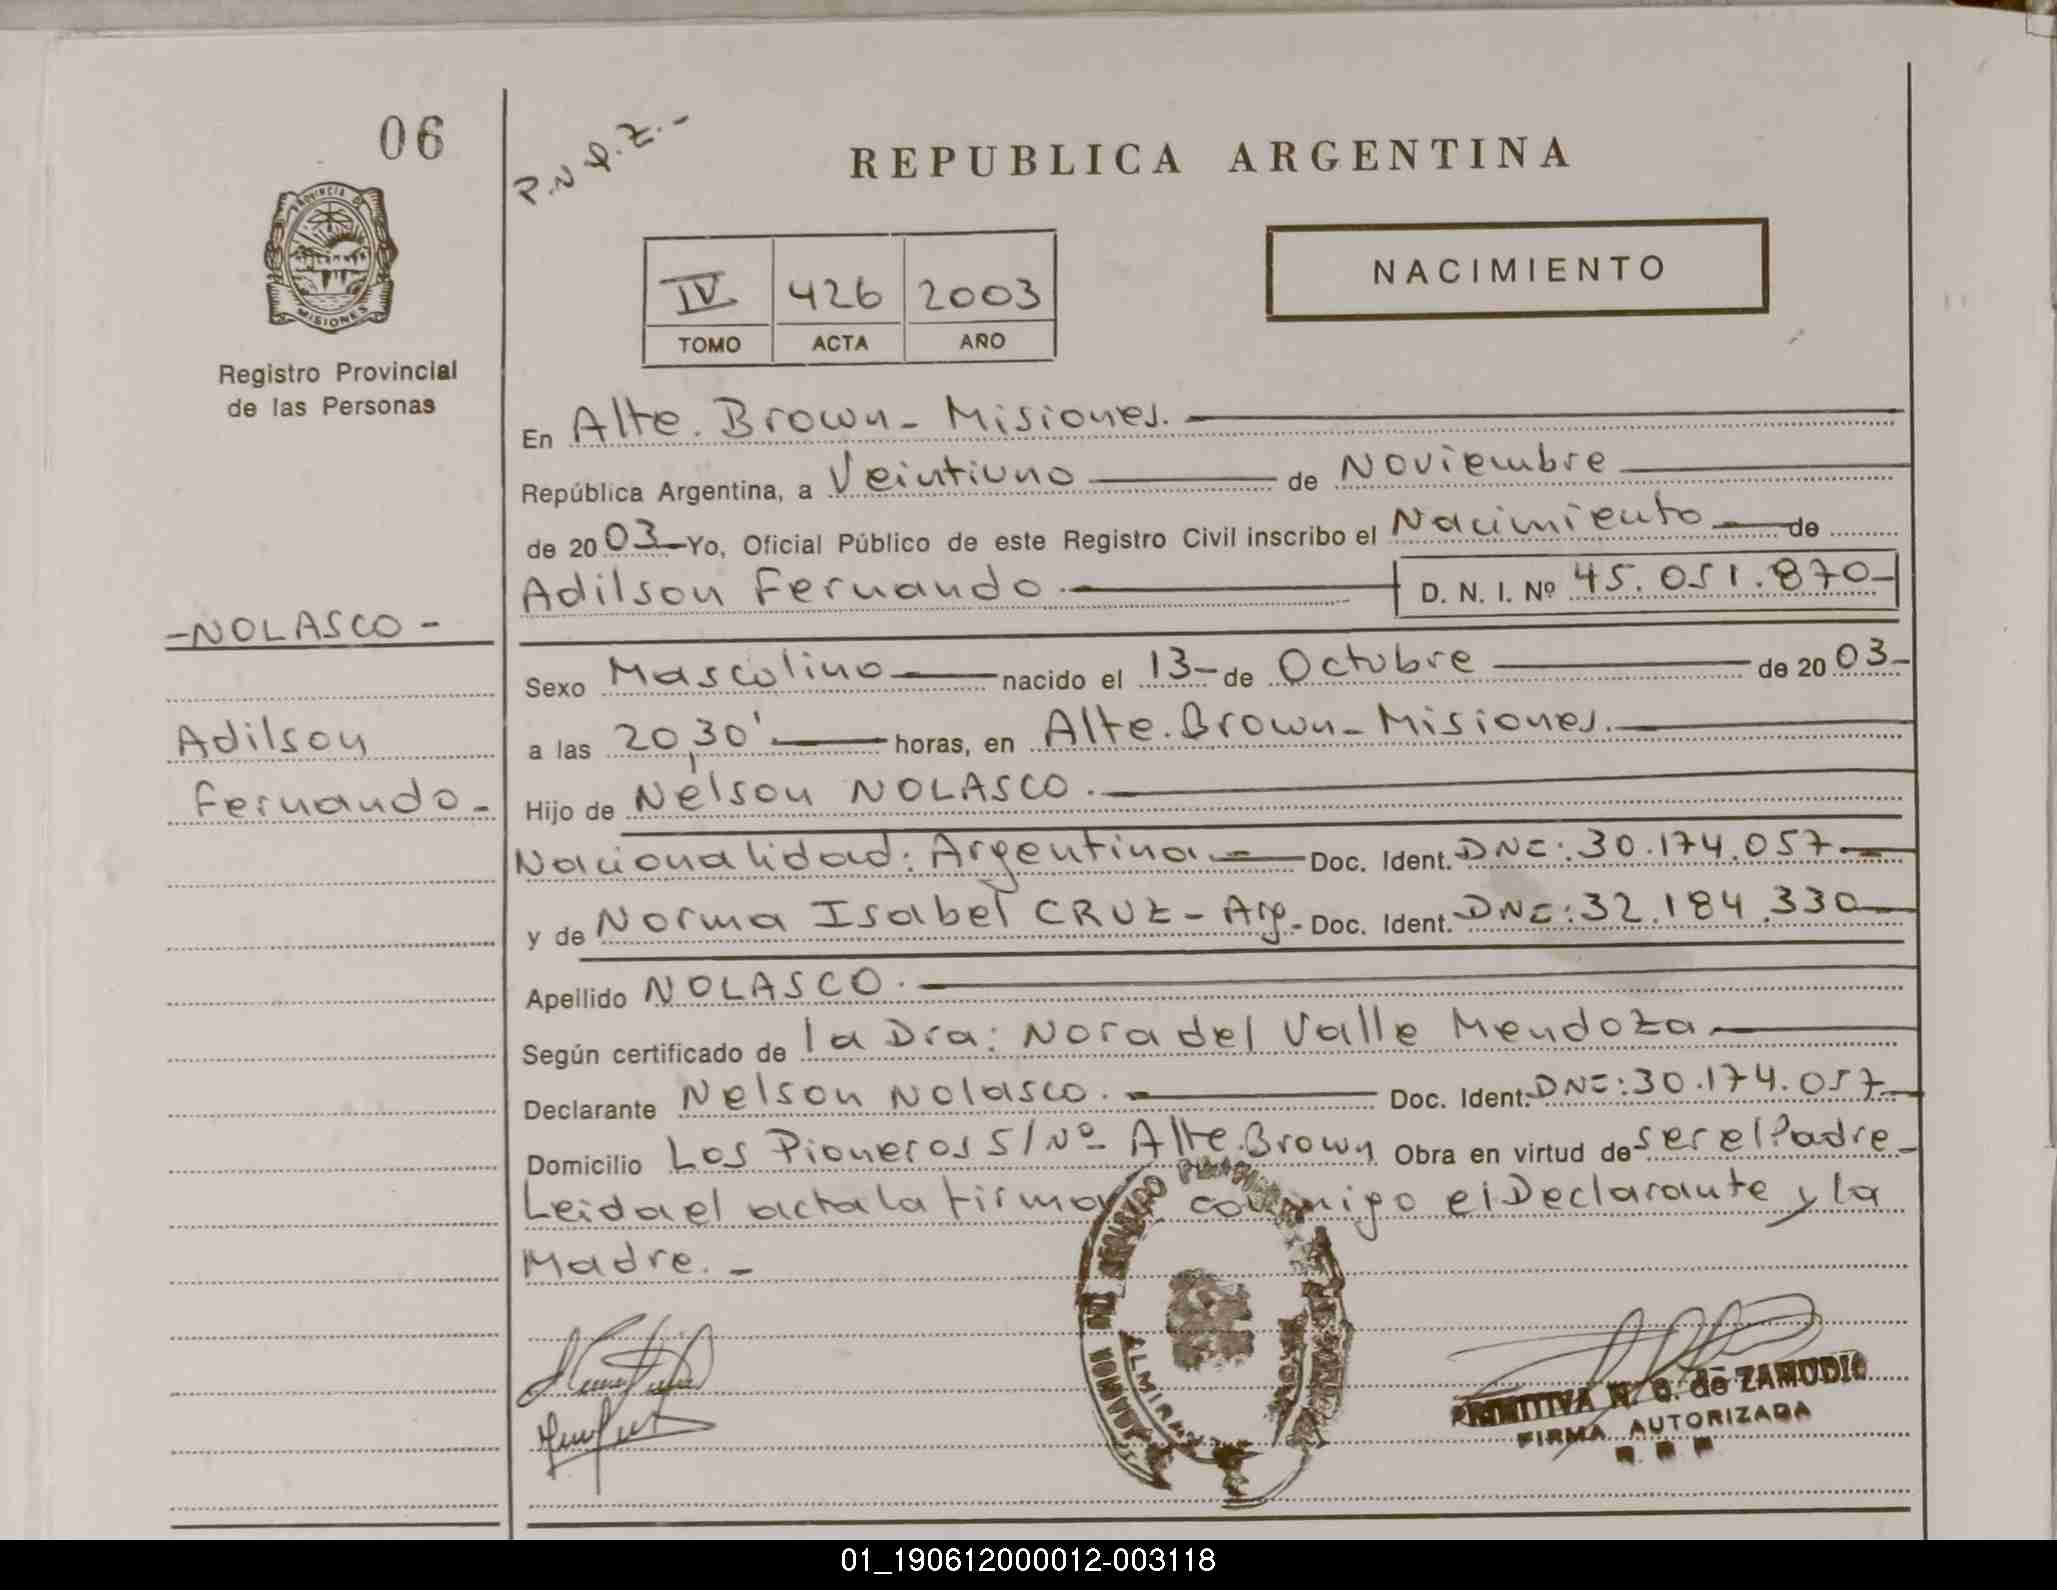 06
PROVINCIA DE
MISIONES
Registro Provincial
de las Personas
REPUBLICA ARGENTINA
NACIMIENTO
IV 426 2003
TOMO ACTA AÑO
En Alte. Brown - Misiones.
República Argentina, a Veintiuno de Noviembre
de 2003 Yo, Oficial Público de este Registro Civil inscribo el Nacimiento de
Adilson Fernando D. N. I. Nº 45.051.870-
-NOLASCO-
Sexo Masculino nacido el 13- de Octubre de 2003-
Adilson
a las 20,30' horas, en Alte. Brown - Misiones.
Fernando-
Hijo de Nelson NOLASCO.
Nacionalidad: Argentina - Doc. Ident. DNI: 30.174.057
y de Norma Isabel CRUZ - Arg- Doc. Ident. DNI: 32.184.330
Apellido NOLASCO.
Según certificado de la Dra: Nora del Valle Mendoza
Declarante Nelson Nolasco. Doc. Ident. DNI: 30.174.057
Domicilio Los Pioneros S/Nº- Alte. Brown Obra en virtud de ser el Padre-
Leida el acta la firman conmigo el Declarante y la
Madre.-
ALMIRANTE
de ZAMUDIO
FIRMA AUTORIZADA
01_190612000012-003118